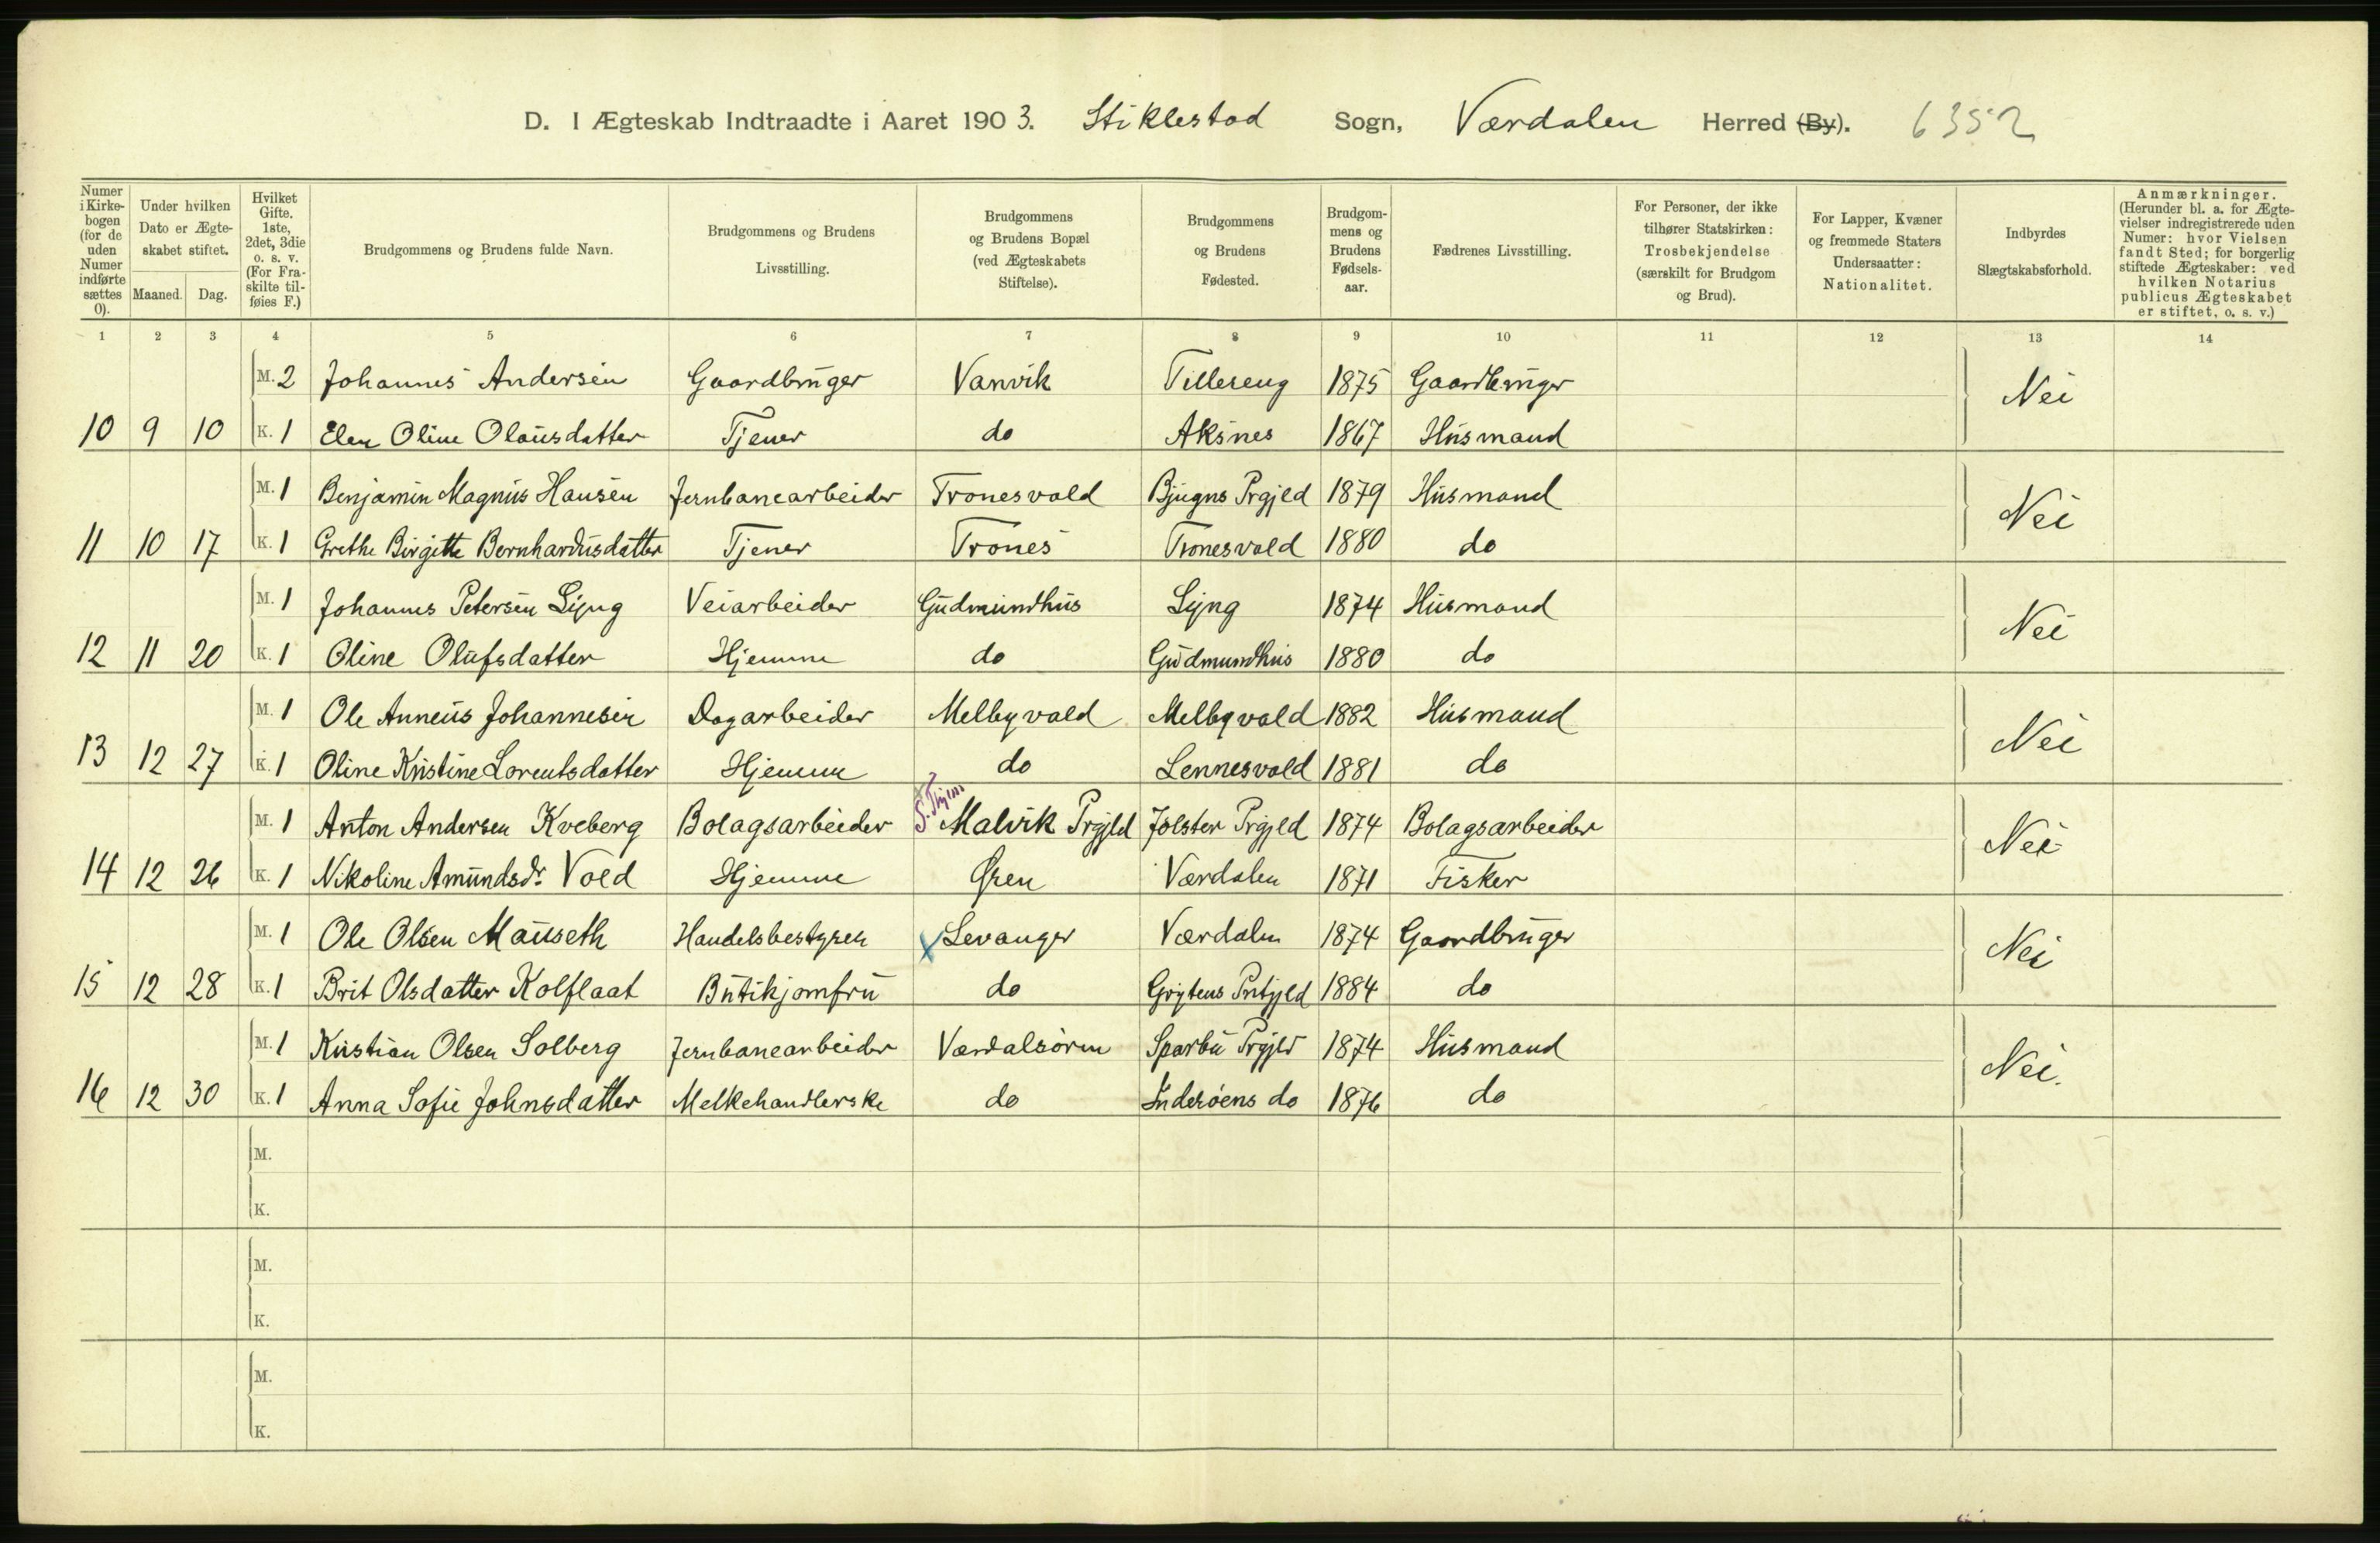 D. I Ægteskab Indtraadte i Aaret 1903. Stiklestad Sogn, Værdalen Herred (By). 6352
Numer i Kirkebogen (for de uden Numer indførte sættes 0). | Under hvilken Dato er Ægteskabet stiftet. Maaned. Dag. | Hvilket Gifte. 1ste, 2det, 3die o. s. v. (For Fraskilte tilføies F.) | Brudgommens og Brudens fulde Navn. | Brudgommens og Brudens Livsstilling. | Brudgommens og Brudens Bopæl (ved Ægteskabets Stiftelse). | Brudgommens og Brudens Fødested. | Brudgommens og Brudens Fødselsaar. | Fædrenes Livsstilling. | For Personer, der ikke tilhører Statskirken: Trosbekjendelse (særskilt for Brudgom og Brud). | For Lapper, Kvæner og fremmede Staters Undersaatter: Nationalitet. | Indbyrdes Slægtskabsforhold. | Anmærkninger. (Herunder bl. a. for Ægtevielser indregistrerede uden Numer: hvor Vielsen fandt Sted; for borgerlig stiftede Ægteskaber: ved hvilken Notarius publicus Ægteskabet er stiftet, o. s. v.)
1 2 3 4 5 6 7 8 9 10 11 12 13 14
M. 2 Johannes Andersen Gaardbruger Vanvik Tillereng 1875 Gaardbruger Nei
10 9 10 K. 1 Elen Oline Olausdatter Tjener do Aksnes 1867 Husmand
M. 1 Benjamin Magnus Hansen Jernbanearbeider Tronesvald Bjugns Prgjeld 1879 Husmand Nei
11 10 17 K. 1 Grethe Birgitte Bernhardusdatter Tjener Trones Tronesvald 1880 do
M. 1 Johannes Petersen Lyng Veiarbeider Gudmundhus Lyng 1874 Husmand Nei
12 11 20 K. 1 Oline Olufsdatter Hjemme do Gudmundhus 1880 do
M. 1 Ole Anneus Johannesen Dagarbeider Melbyvald Melbyvald 1882 Husmand Nei
13 12 27 K. 1 Oline Kristine Lorentsdatter Hjemme do Lennesvald 1881 do
M. 1 Anton Andersen Kveberg Bolagsarbeider Malvik Prgjld Jølster Prgjeld 1874 Bolagsarbeider Nei
14 12 26 K. 1 Nikoline Amundsdr. Vold Hjemme Øren Værdalen 1871 Fisker
M. 1 Ole Olsen Mauseth Handelsbestyrer x Levanger Værdalen 1874 Gaardbruger Nei
15 12 28 K. 1 Brit Olsdatter Kolflaat Butikjomfru do Grytens Prstgjeld 1884 do
M. 1 Kristian Olsen Solberg Jernbanearbeider Værdalsøren Sparbu Prgjld 1874 Husmand Nei.
16 12 30 K. 1 Anna Sofie Johnsdatter Melkehandlerske do Inderøens do 1876 do
M.
K.
M.
K.
M.
K.